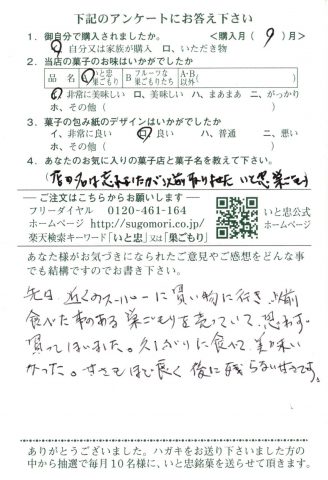 下記のアンケートにお答え下さい
1. 御自分で購入されましたか。 <購入月( 9 )月>
イ、自分又は家族が購入 ロ、いただき物
2. 当店の菓子のお味はいかがでしたか
品 名 A いと忠 巣ごもり B フルーツな 巣ごもりたち A・B 以外
イ、非常に美味しい ロ、美味しい ハ、まあまあ ニ、がっかり
ホ、その他( )
3. 菓子の包み紙のデザインはいかがでしたか
イ、非常に良い ロ、良い ハ、普通 ニ、悪い
ホ、その他( )
4. あなたのお気に入りの菓子店と菓子名を教えて下さい。
(店名は忘れましたが以前取りよせた いと忠 巣ごもり
ご注文はこちらからお願いします
フリーダイヤル 0120-461-164
ホームページ http://sugomori.co.jp/
楽天検索キーワード「いと忠」又は「巣ごもり」
いと忠公式
ホームページ
あなた様がお気づきになられたご意見やご感想をどんな事
でも結構ですのでお書き下さい。
先日 近くのスーパーに買い物に行き 以前
食べた事のある 巣ごもりを売っていて 思わず
買ってしまいました。久しぶりに食べて 美味し
かった。甘さもほど良く 後に残らない甘さです。
ありがとうございました。ハガキをお送り下さいました方の
中から抽選で毎月10名様に、いと忠銘菓を送らせて頂きます。